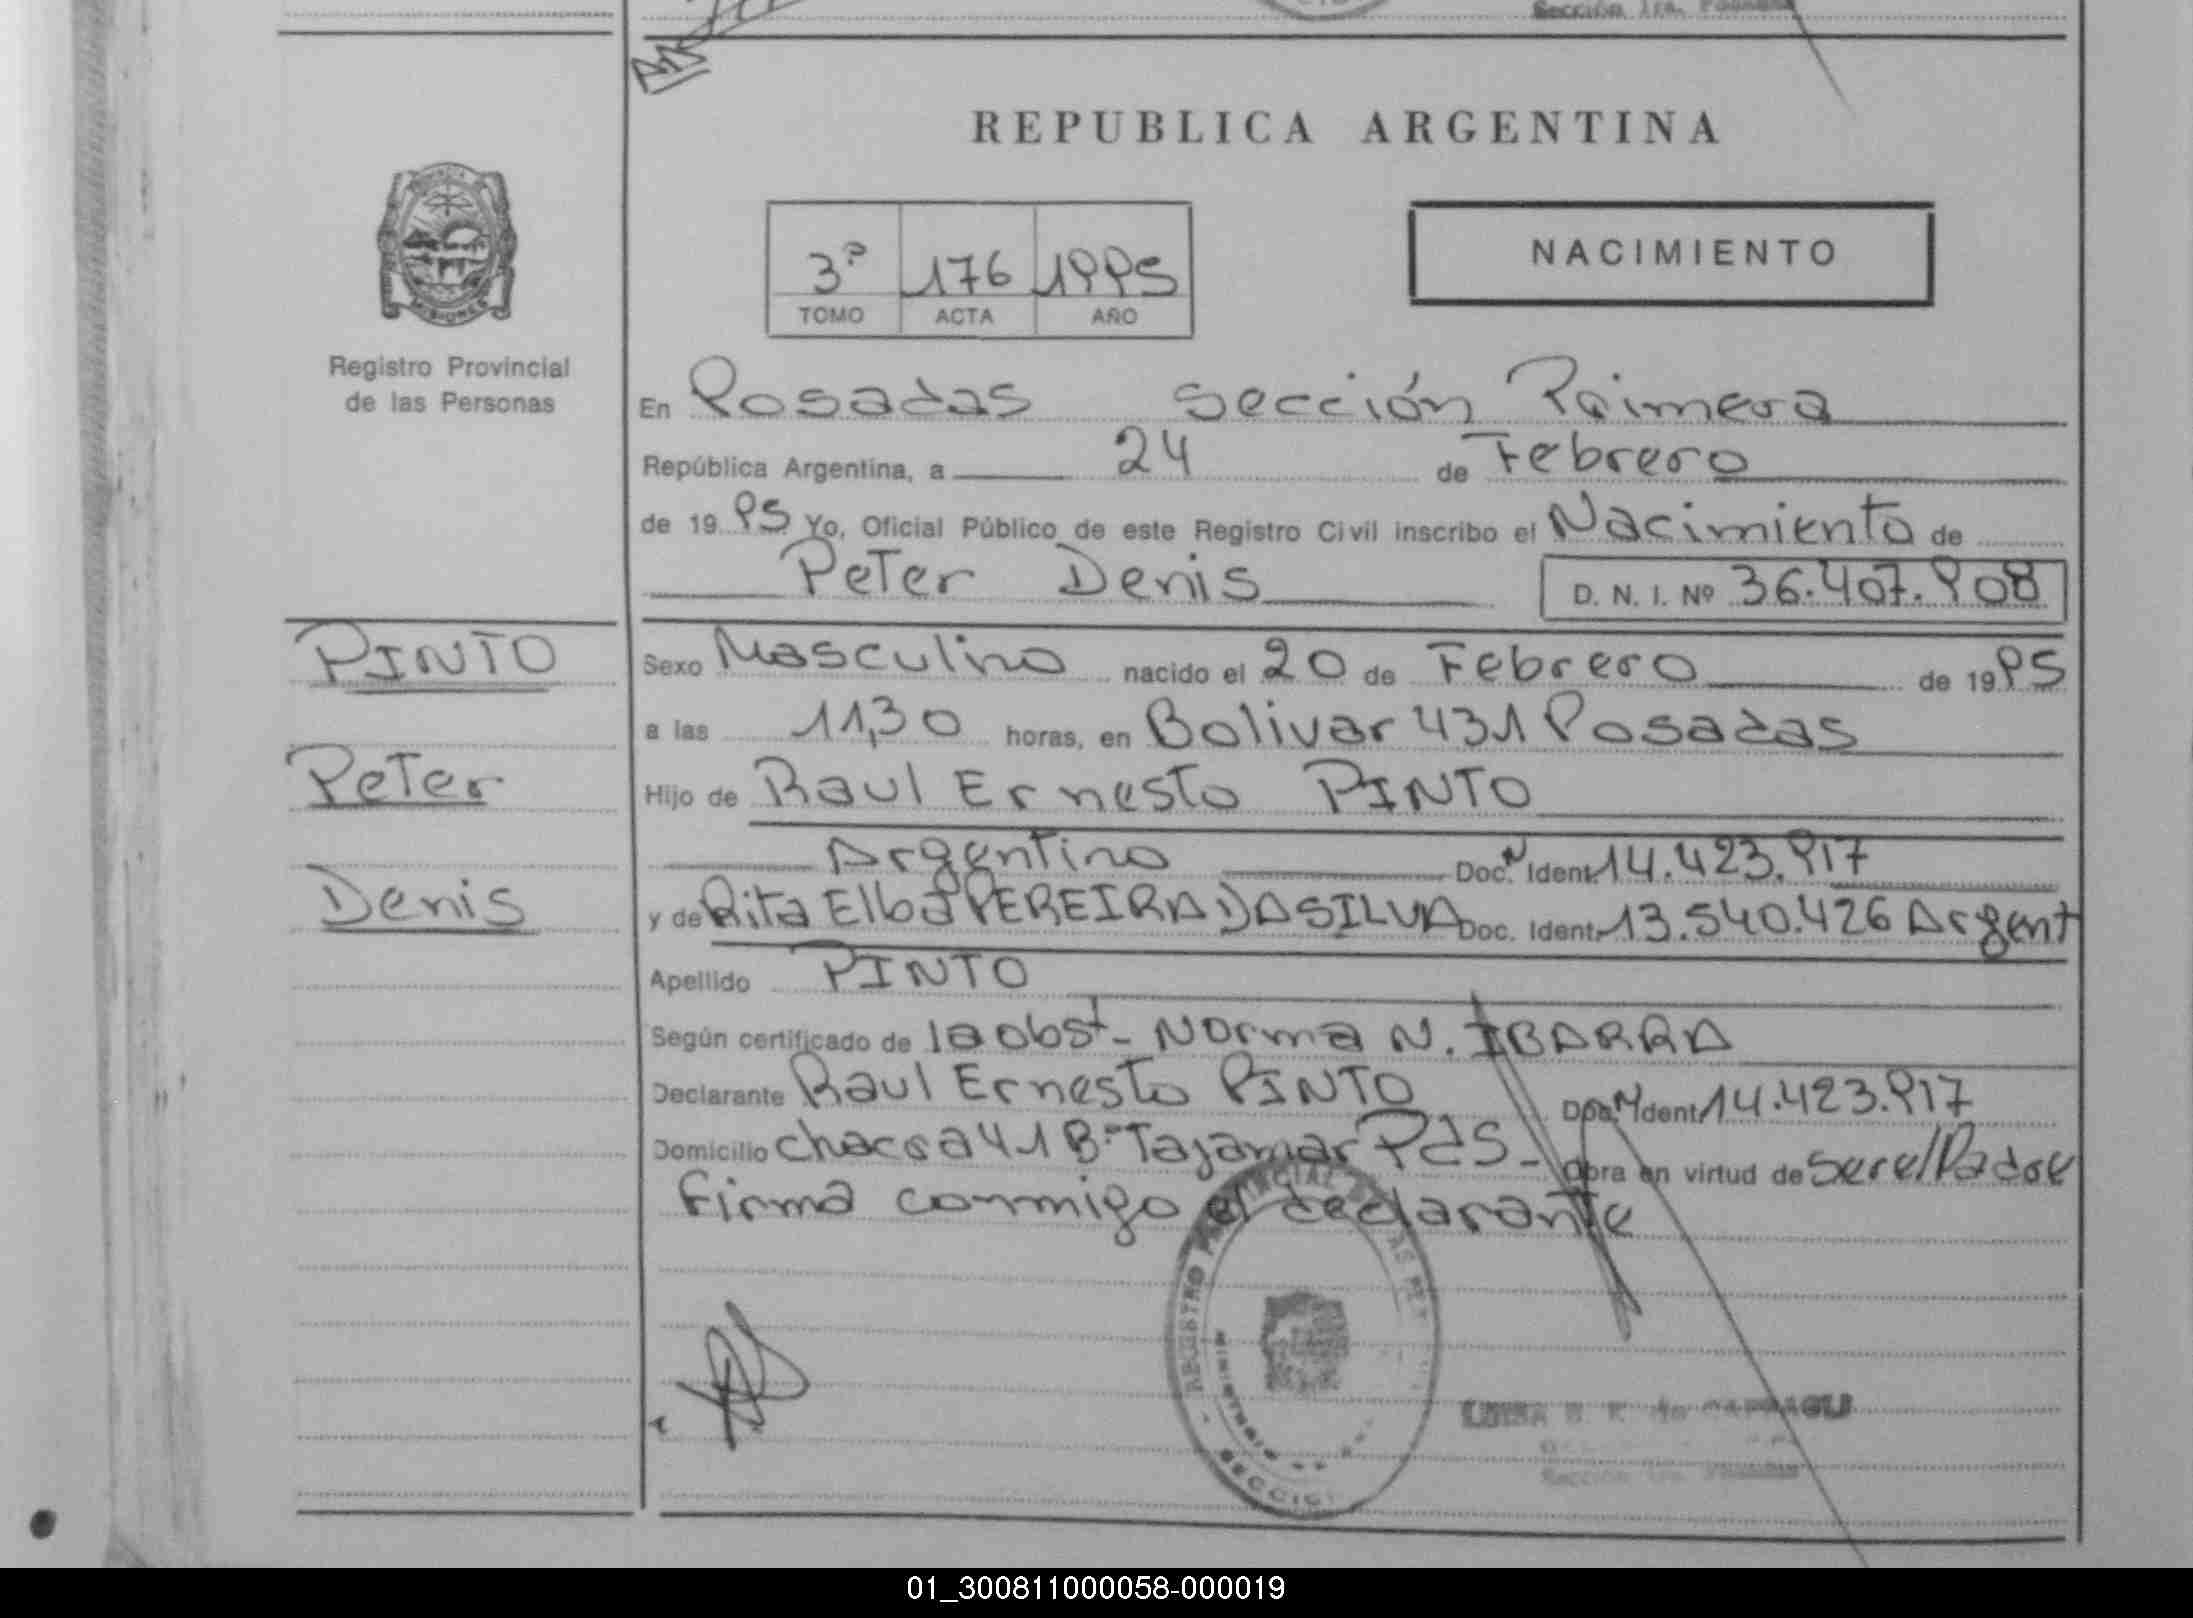 Sección 1ra. Posadas
REPUBLICA ARGENTINA
3º 176 1995
TOMO ACTA AÑO
NACIMIENTO
MISIONES
Registro Provincial
de las Personas
En Posadas Sección Primera
República Argentina, a 24 de Febrero
de 1995 Yo, Oficial Público de este Registro Civil inscribo el Nacimiento de
Peter Denis D. N. I. Nº 36.407.908
PINTO
Peter
Denis
Sexo Masculino nacido el 20 de Febrero de 1995
a las 11,30 horas, en Bolivar 431 Posadas
Hijo de Raul Ernesto PINTO
Argentino Doc. N Ident. 14.423.917
y de Rita Elba PEREIRA DASILVA Doc. Ident. 13.540.426 Argent
Apellido PINTO
Según certificado de la obst- Norma N. IBARRA
Declarante Raul Ernesto PINTO Doc. N Ident. 14.423.917
Domicilio chacra 41 Bº Tajamar Pdas- Obra en virtud de ser el Padre
Firma conmigo el declarante
REGISTRO PROVINCIAL DE LAS PER
LUISA
Sección 1ra. Posadas
01_300811000058-000019